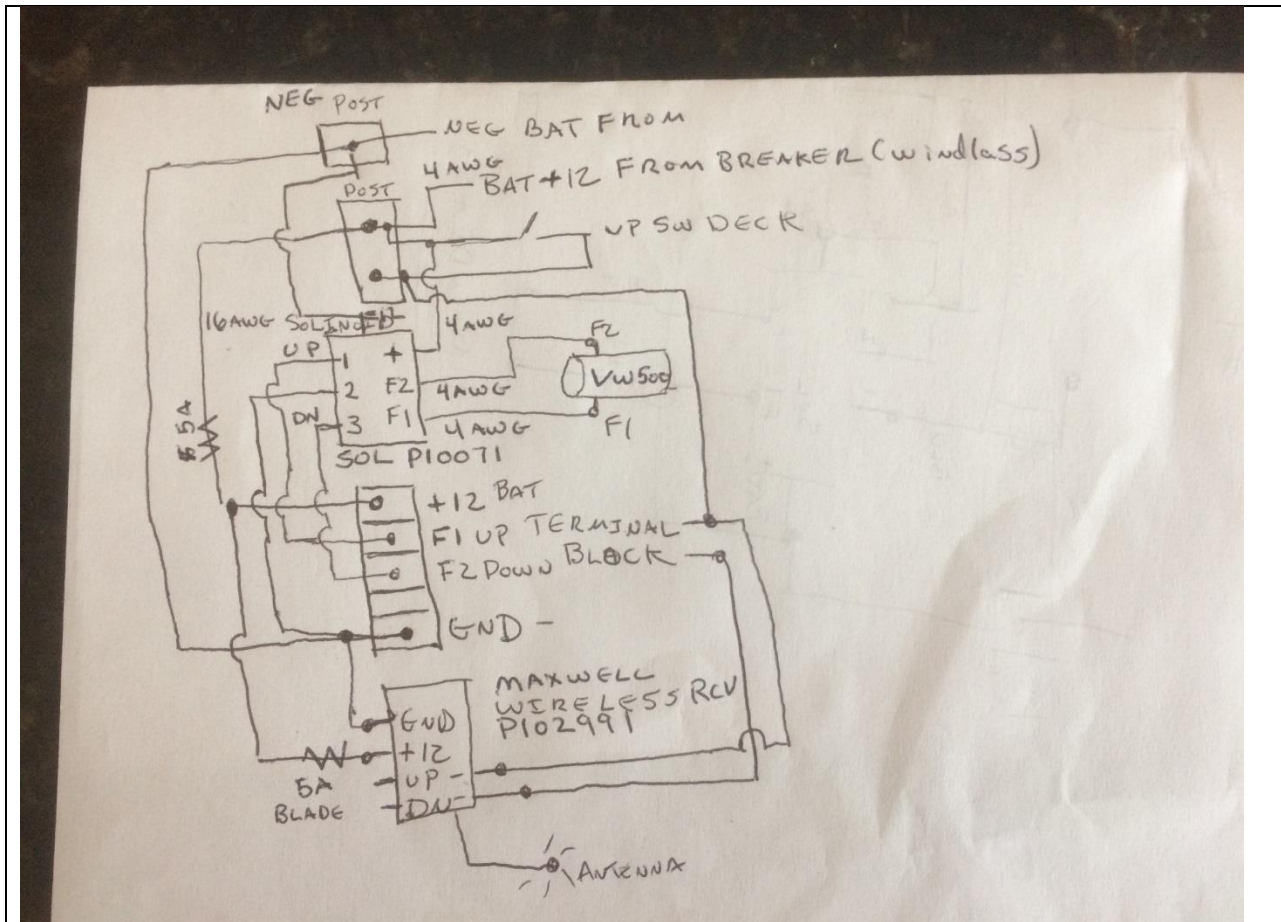 NEG POST
NEG BAT FROM
4 AWG
BAT +12 FROM BREAKER (windlass)
POST
UP SW DECK
16 AWG SOLINOID
4 AWG
UP
1 +
2 F2
DN 3 F1
4 AWG
4 AWG
F2
VW500
F1
SOL P10071
5A
+12 BAT
F1 UP TERMINAL
F2 DOWN BLOCK
GND -
MAXWELL
WIRELESS RCV
P102991
GND
+12
UP -
DN -
5A
BLADE
ANTENNA